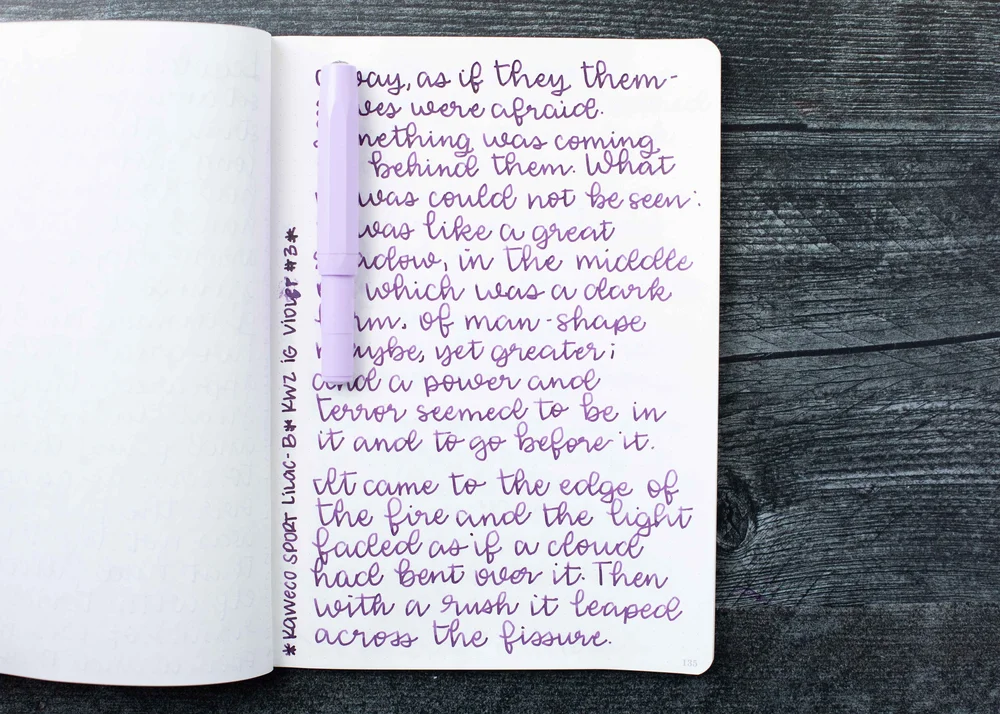 way, as if they them-
ves were afraid.
mething was coming
behind them. What
was could not be seen:
was like a great
adow, in the middle
which was a dark
rm. of man-shape
maybe, yet greater;
and a power and
terror seemed to be in
it and to go before it.
It came to the edge of
the fire and the light
faded as if a cloud
had bent over it. Then
with a rush it leaped
across the fissure.
*KAWECO SPORT LILAC-B* KWZ IG VIOLET #3*
133